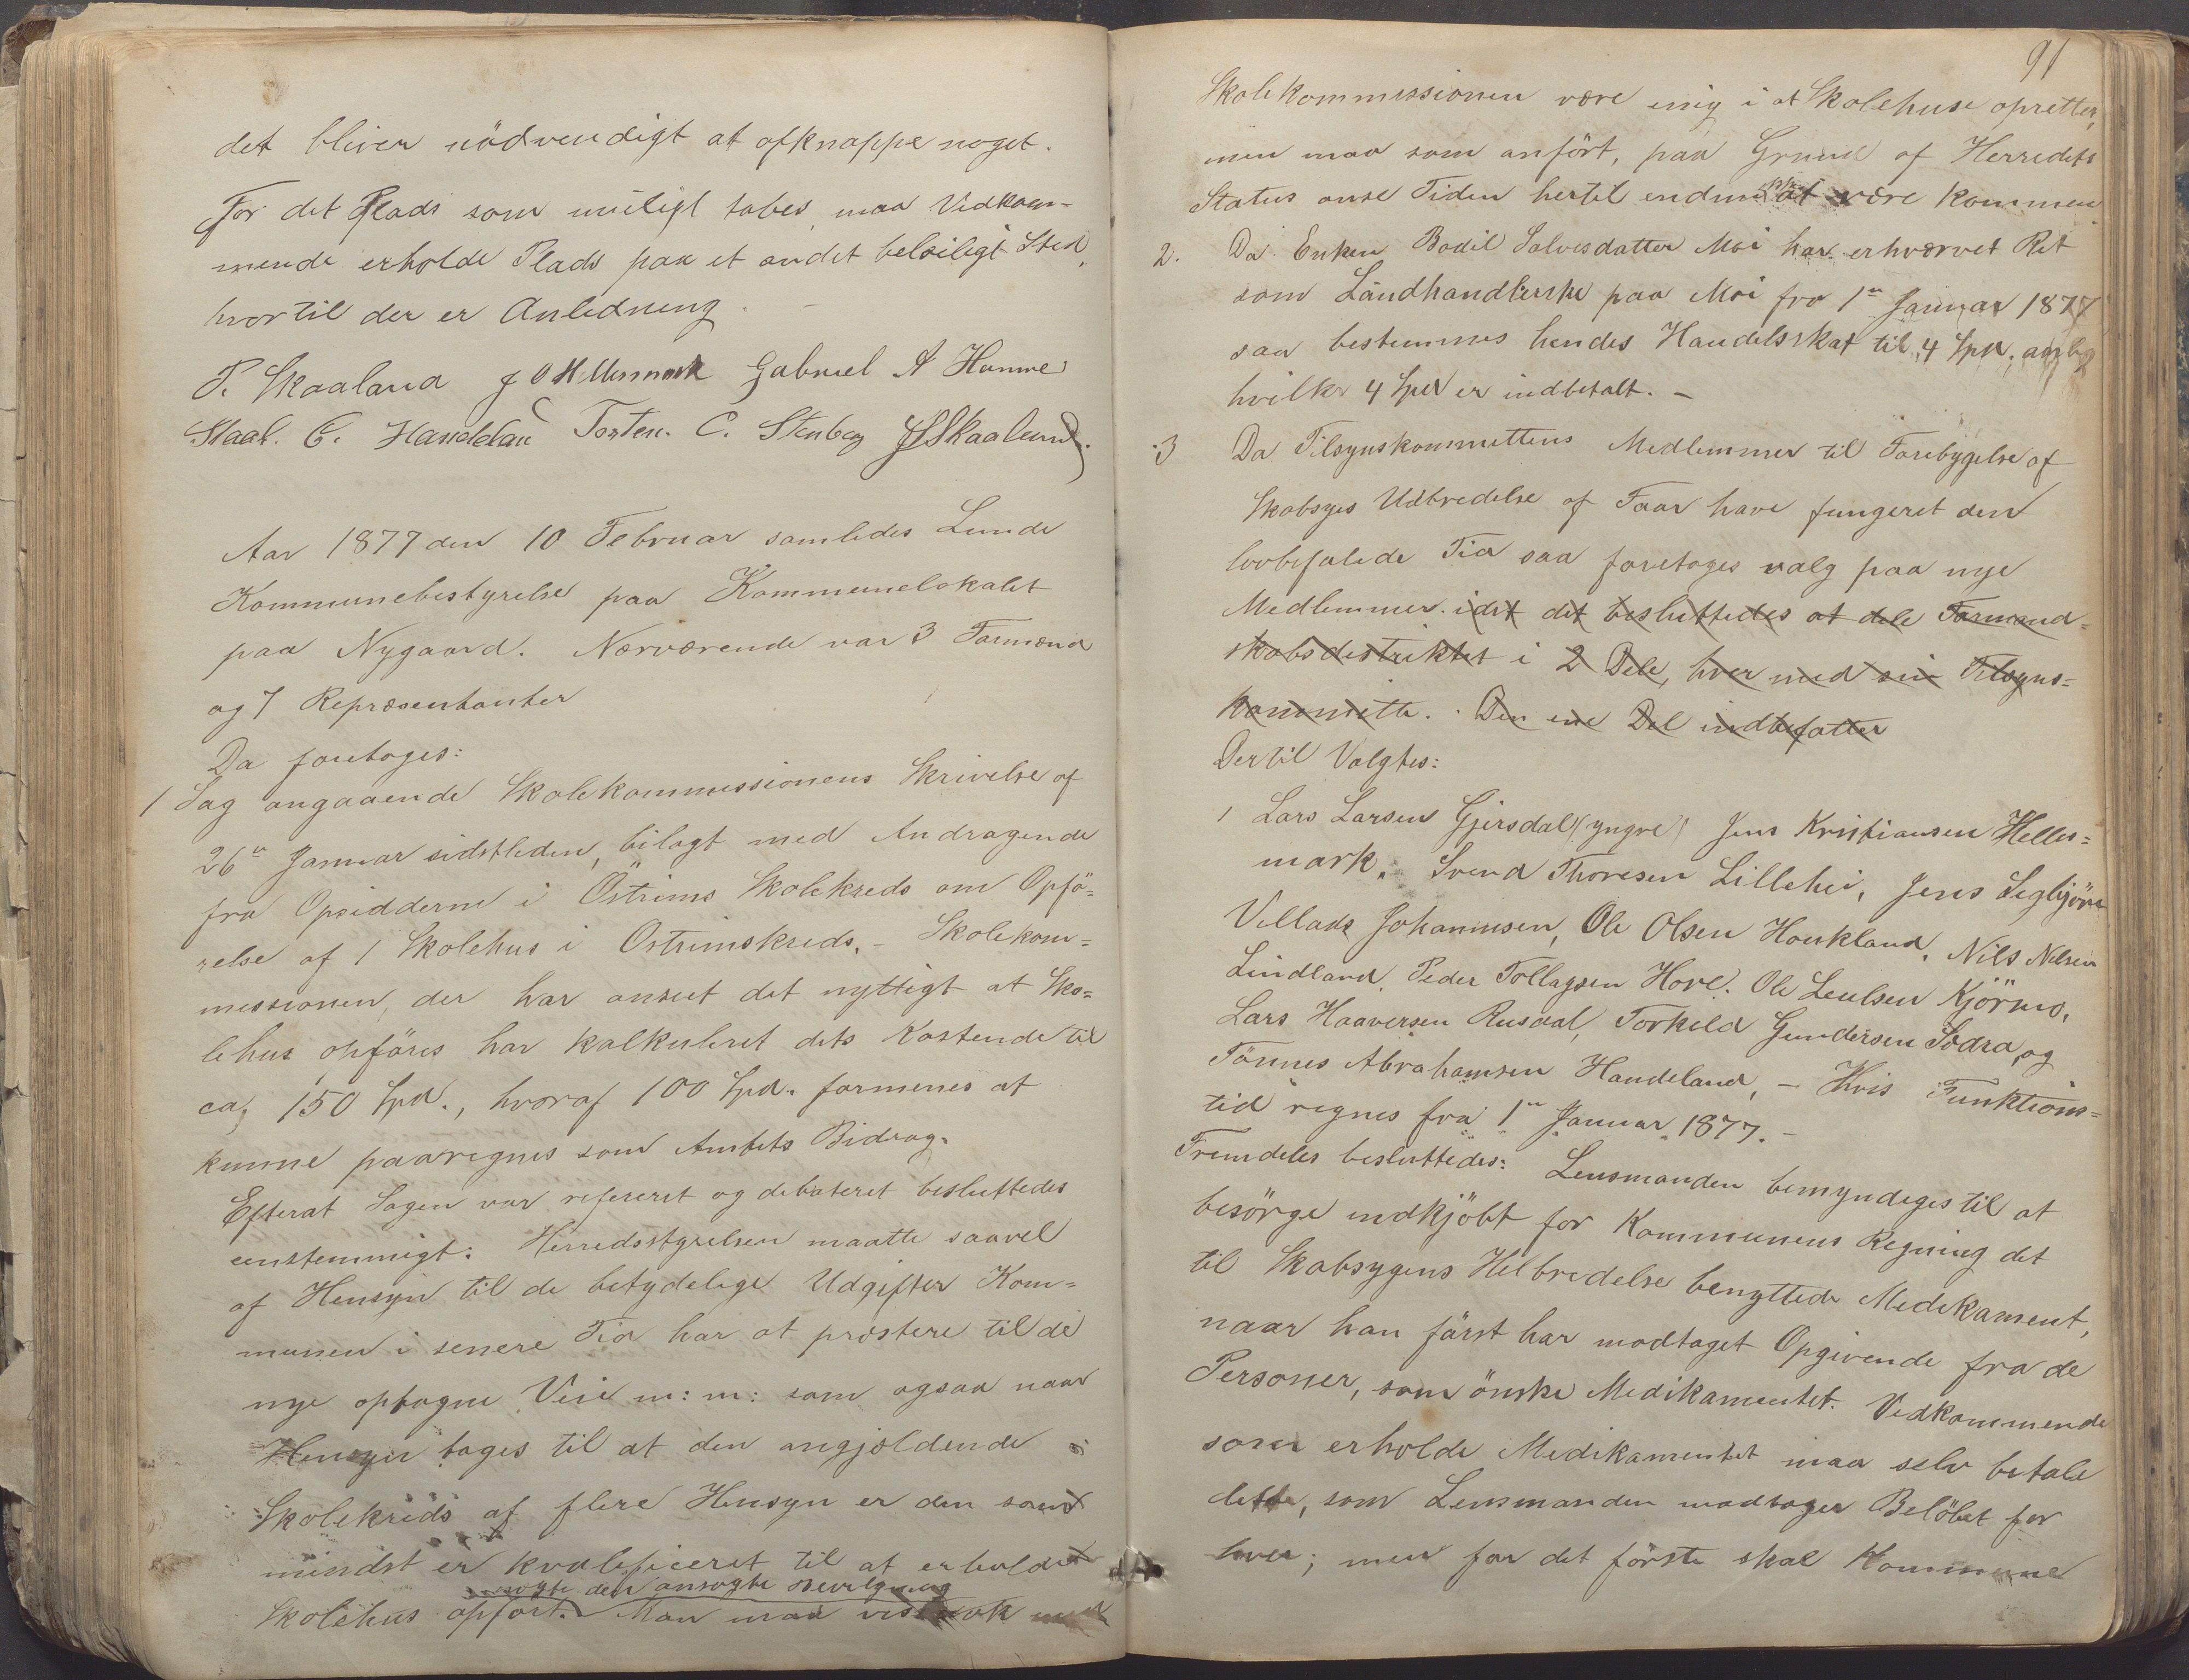 det bliver nödvendigt at afknappe noget.
For det Plads som muligt tabes maa Vedkom-
mende erholde Plads paa et andet beleiligt Sted,
hvortil der er Anledning. –
P. Skaaland J O Hellesmark Gabriel A Hamre
Staal. C. Handeland Torsten. C. Stenberg Skaaland.
Aar 1877 den 10 Februar samledes Lunde
Kommunebestyrelse paa Kommunelokalet
paa Nygaard. Nærværende var 3 Formænd
og 7 Repræsentanter
Da foretoges:
1 Sag angaaende Skolekommissionens Skrivelse af
26de Januar sidstleden, bilagt med Andragende
fra Opsidderne i Östrims Skolekreds om Opfö=
relse af 1 Skolehus i Östrimskreds. – Skolekom=
missionen, der har anseet det nyttigt at Sko=
lehus opföres har kalkuleret dets Kostende til
ca, 150 Spd., hvoraf 100 Spd. formenes at
kunne paaregnes som Amtets Bidrag.
Efterat Sagen var refereret og debateret besluttedes
eenstemmigt: Herredsstyrelsen maatte saavel
af Hensyn til de betydelige Udgifter Kom=
munen i senere Tid har at præstere til de
nye optagne Veie m: m: som ogsaa naar
Hensyn tages til at den angjældende
Skolekreds af flere Hensyn er den som
mindst er kvalificeret til at erholdet
den ansøgte Bevilgning
Skolehus opfört. Man maa vistnok med
91
Skolekommissionen være enig i at Skolehuse opretter,
men maa som anfört, paa Grund af Herredets
Status anse Tiden hertil endnu ikke at være kommen.
2. Da Enken Bodil Salvesdatter Moi har erhværvet Ret
som Landhandlerske paa Moi fra 1ste Januar 1877
saa bestemmes hendes Handelsskat til 4 Spd. aarlig
hvilke 4 Spd er indbetalt. –
3 Da Tilsynskommitteens Medlemmer til Forebygelse af
Skabsyges Udbredelse af Faar have fungeret den
lovbefalede Tid saa foretoges valg paa nye
Medlemmer. idet det besluttedes at dele Formand=
skabsdistriktet i 2 Dele, hver med sin Tilsyns=
kommitte. Den ene Del indbefatter
Dertil Valgtes:
1 Lars Larsen Gjersdal (yngre) Jens Kristiansen Helles=
mark. Svend Thoresen Lillehei, Jens Segbjörn
Villads Johannesen, Ole Olsen Haukland, Nils Nilsen
Lindland. Peder Tollagsen Hove. Ole Leulsen Kjörmo,
Lars Haaversen Rusdal, Torkild Gundersen Sodra, og
Tönnes Abrahamsen Handeland, – Hvis Funktions=
tid regnes fra 1ste Januar 1877. –
Fremdeles besluttedes: Lensmanden bemyndiges til at
besörge indkjöbt for Kommunens Regning det
til Skabsygens Helbredelse benyttede Medikament,
naar han först har modtaget Opgivende fra de
Personer, som önske Medikamentet. Vedkommende
som erholde Medikamentet maa selv betale
dette, som Lensmanden modtager Belöbet for
hver; men for det förste skal Kommune